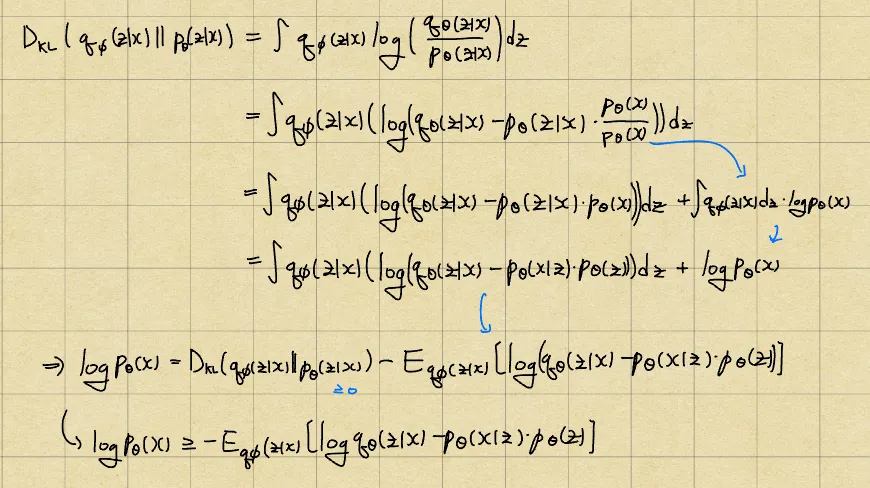 D_KL(q_φ(z|x)||p_θ(z|x)) = ∫ q_φ(z|x) log(q_θ(z|x)/p_θ(z|x))dz
= ∫q_φ(z|x)(log(q_θ(z|x) - p_θ(z|x)·p_θ(x)/p_θ(x)))dz
= ∫q_φ(z|x)(log(q_θ(z|x) - p_θ(z|x)·p_θ(x)))dz + ∫q_φ(z|x)dz·log p_θ(x)
= ∫q_φ(z|x)(log(q_θ(z|x) - p_θ(x|z)·p_θ(z)))dz + log p_θ(x)
⇒ log p_θ(x) = D_KL(q_φ(z|x)||p_θ(z|x)) - E_q_φ(z|x)[log(q_θ(z|x) - p_θ(x|z)·p_θ(z))]
≥0
↳ log p_θ(x) ≥ -E_q_φ(z|x)[log q_θ(z|x) - p_θ(x|z)·p_θ(z)]